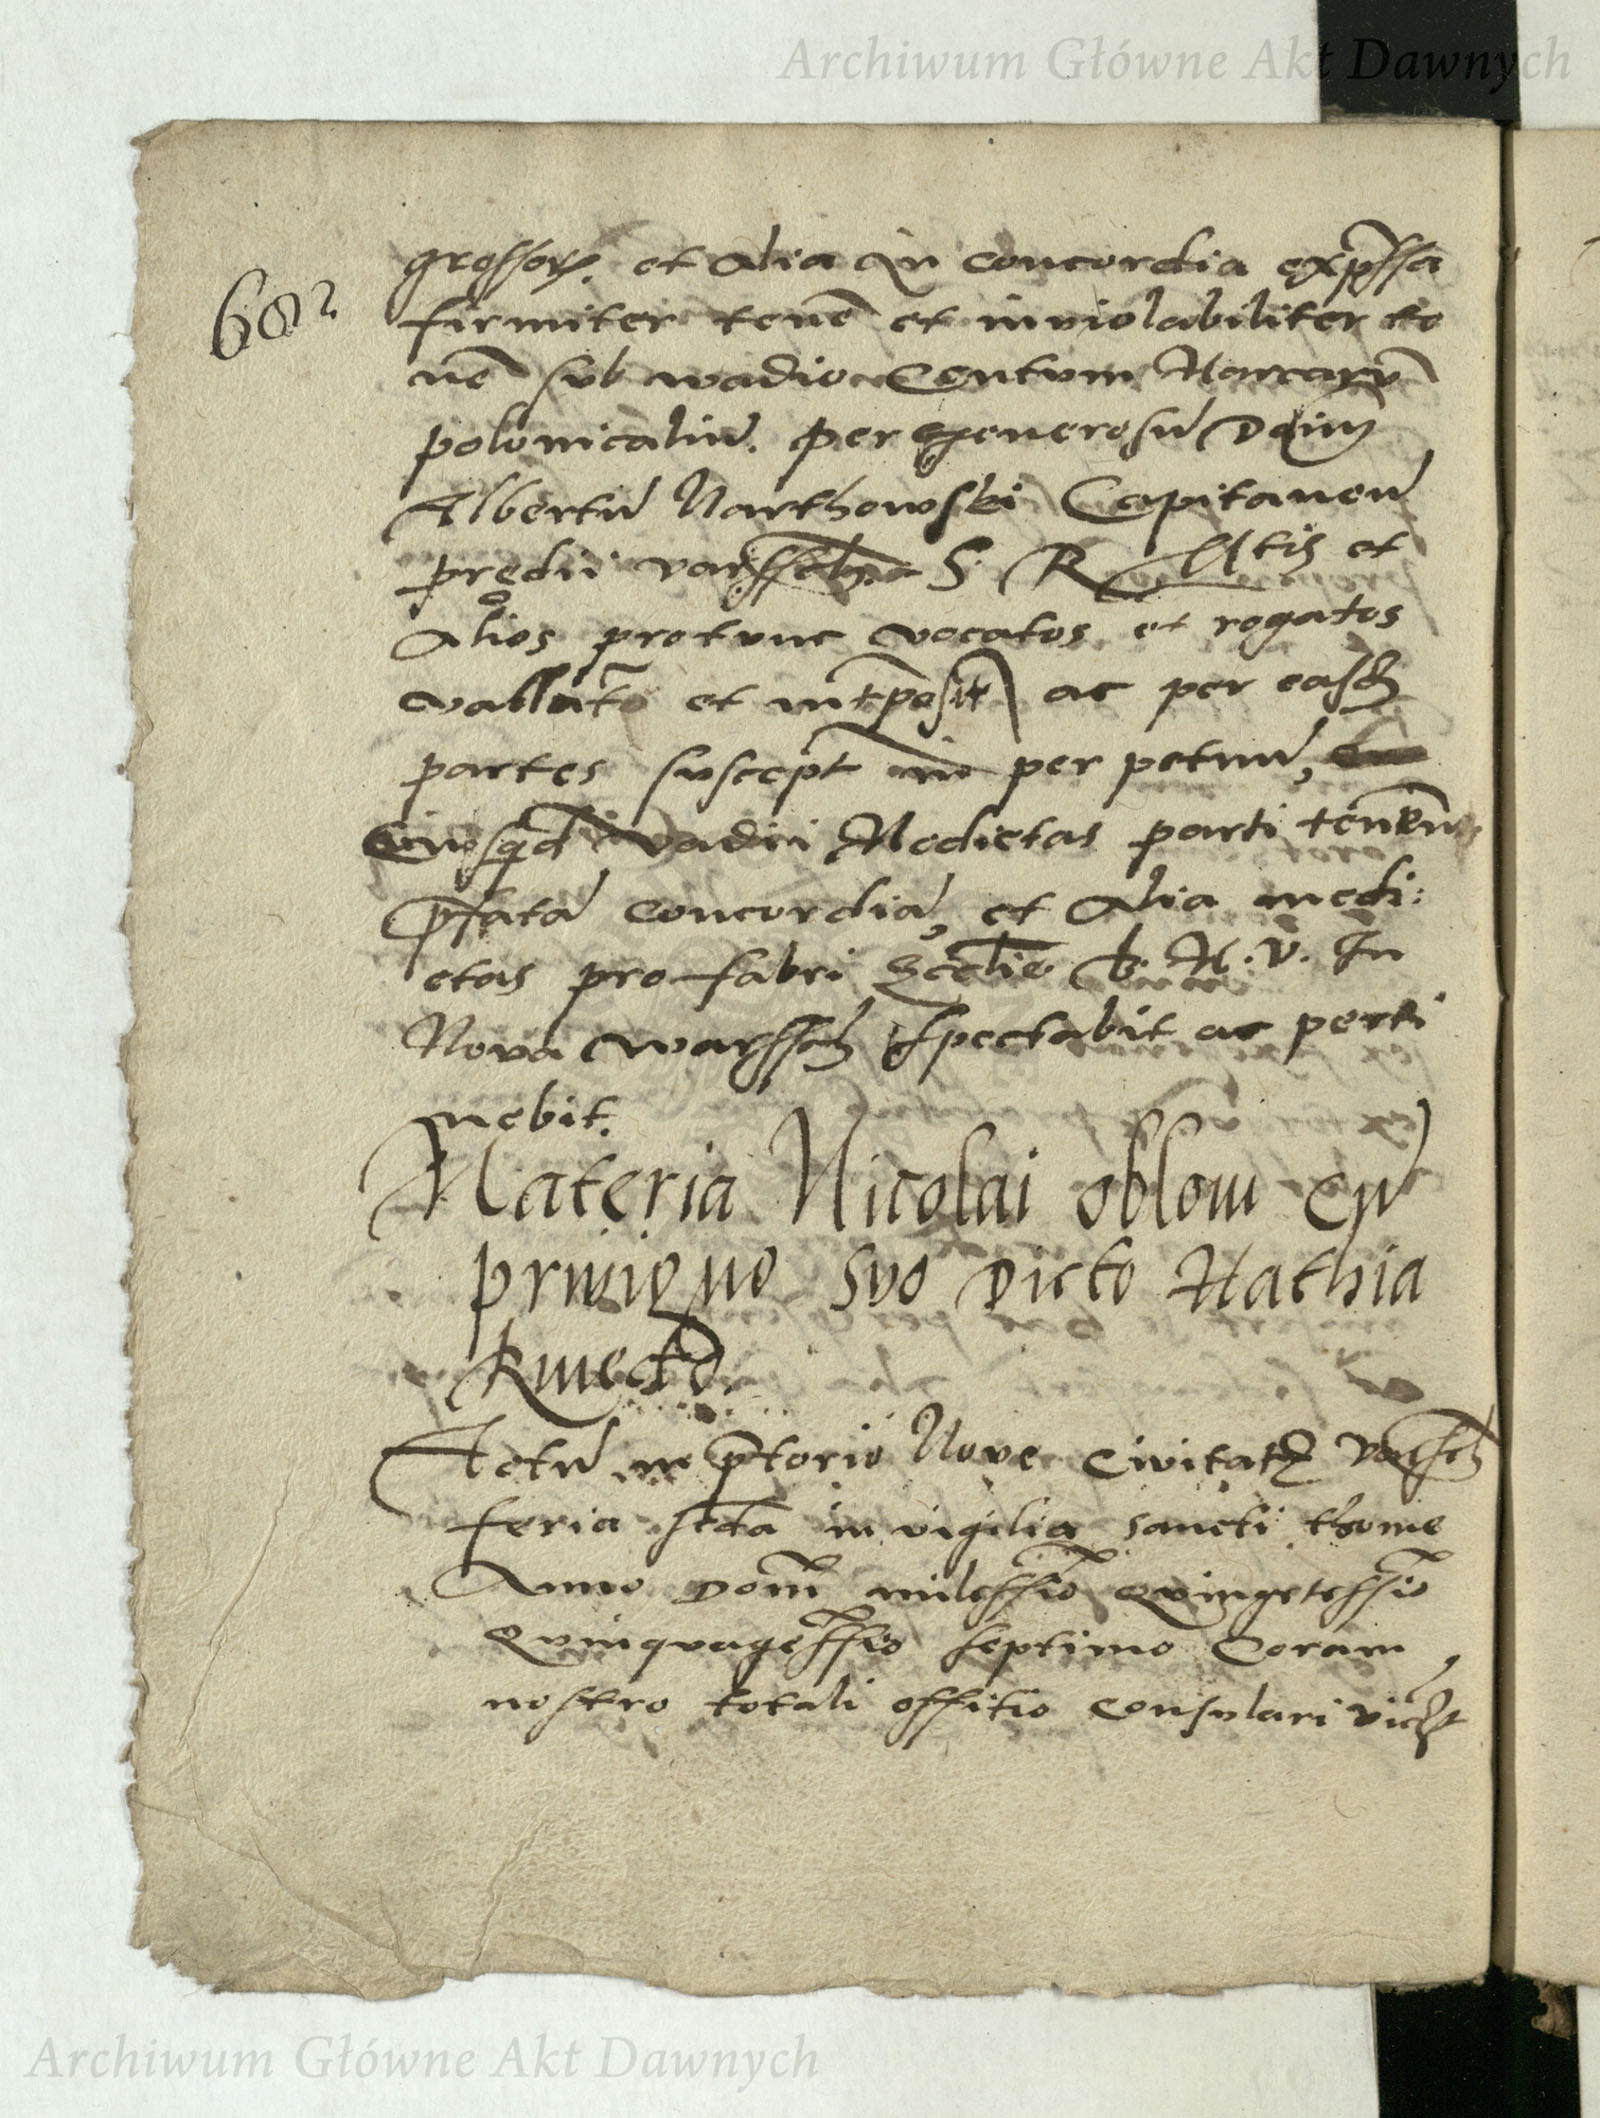 Archiwum Główne Akt Dawnych
602
grossorꝝ. et alia in concordia exp̄ssa
firmiter tenē et inviolabiliter te
nē sub vadio Centum Marcarū
polonicaliū. per generosū Dnm̄
Albertū Narthowski Capitaneū
predii varssch. S. R. Mtis et
alios protunc vocatos et rogatos
vallat̄ et int̄posit ac per easd
partes suscept in perpetuū,
Eiusqd vadii Medietas parti tenen
p̄fatā concordiā, et alia medi:
etas pro fabri Ecclie B. M. V. In
Nova warssch spectabit ac perti
nebit.
Materia Nicolai oblom cū
privigno suo Dicto Mathia
Kmecto.
Actū in p̄torio Nove Civitatꝭ varsch
feria scda in vigilia sancti thome
Anno Domī milessīo Qvingetessīo
Qvinqvagessīo septimo Coram
nostro totali offitio consulari
Archiwum Główne Akt Dawnych